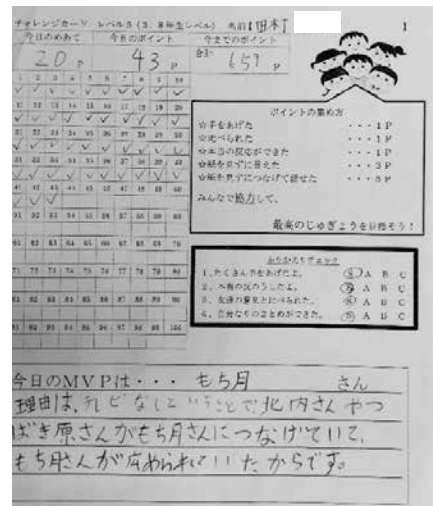 チャレンジカードV レベル5（5、6年生レベル） 名前【田本】 1
今日のめあて 今日のポイント 今までのポイント
20P 43P 合計 659P
1 2 3 4 5 6 7 8 9 10
11 12 13 14 15 16 17 18 19 20
21 22 23 24 25 26 27 28 29 30
31 32 33 34 35 36 37 38 39 40
41 42 43 44 45 46 47 48 49 50
51 52 53 54 55 56 57 58 59 60
61 62 63 64 65 66 67 68 69 70
71 72 73 74 75 76 77 78 79 80
81 82 83 84 85 86 87 88 89 90
91 92 93 94 95 96 97 98 99 100
ポイントの集め方
☆手をあげた ・・・1P
☆比べられた ・・・1P
☆本当の反応ができた ・・・1P
☆紙を見ずに答えた ・・・3P
☆紙を見ずにつなげて話せた ・・・5P
みんなで協力して、
最高のじゅぎょうを目指そう！
ふりかえりチェック
1、たくさん手をあげたよ。 S A B C
2、本物の反のうしたよ。 S A B C
3、友達の意見とにべられた。 S A B C
4、自分なりのまとめができた。 S A B C
今日のMVPは・・・ もち月 さん
理由は、ナビなしということで北内さんやつ
ばき原さんがもち月さんにつなげていて、
もち月さんが広められていたからです。